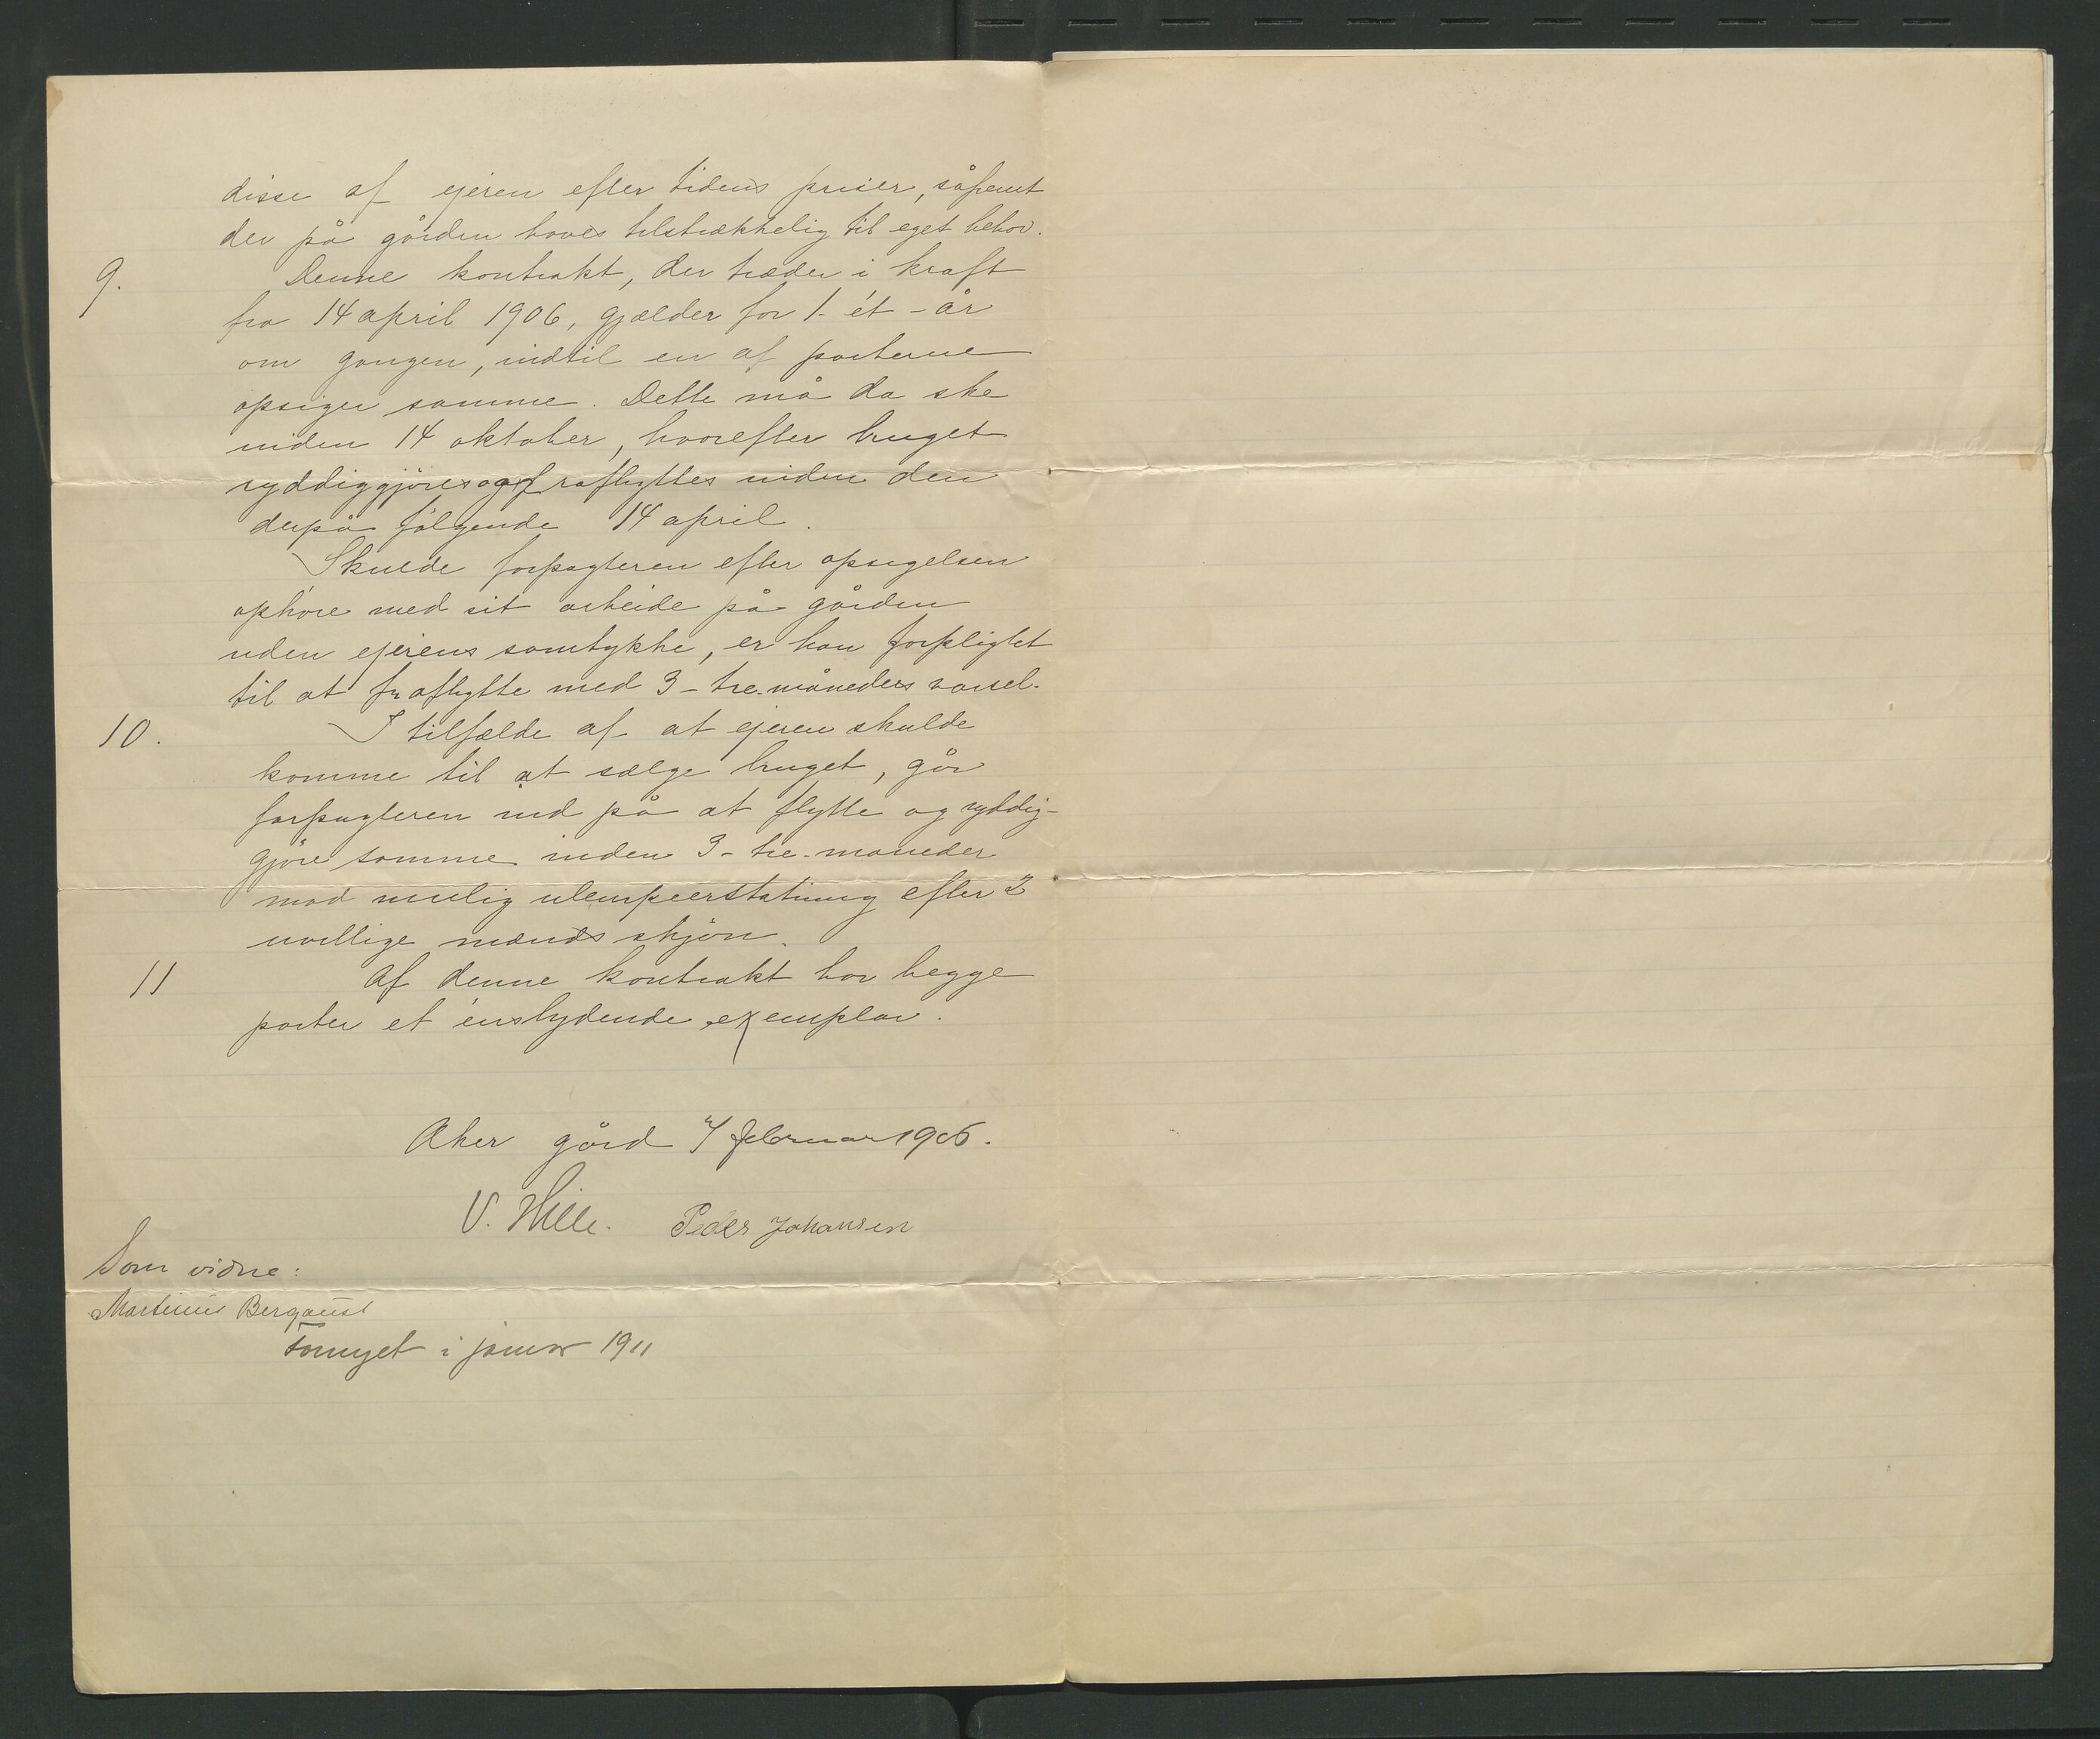 disse af ejeren efter tidens priser, såfremt
der på gården haves tilstrækkelig til eget behov.
9. Denne kontrakt, der træder i kraft
fra 14 april 1906, gjælder for 1 - ét - år
om gangen, indtil en af parterne
opsiger samme. Dette må da ske
inden 14 oktober, hvorefter bruget
ryddiggjöres og fraflyttes inden den
derpå fölgende 14 april.
Skulde forpagteren efter opsigelsen
ophöre med sit arbeide på gården
uden ejerens samtykke, er han forpligtet
til at fraflytte med 3 - tre - måneders varsel.
10. I tilfælde af at ejeren skulde
komme til at sælge bruget, går
forpagteren ind på at flytte og ryddig-
gjöre samme inden 3 - tre - måneder
mod mulig ulempeerstatning efter 2
uvillige mænds skjön.
11 Af denne kontrakt har begge
parter et énslydende exemplar.
Aker gård 7 februar 1906.
V. Hille. Peder Johansen
Som vidne:
Martinius Bergaust
fornyet i januar 1911